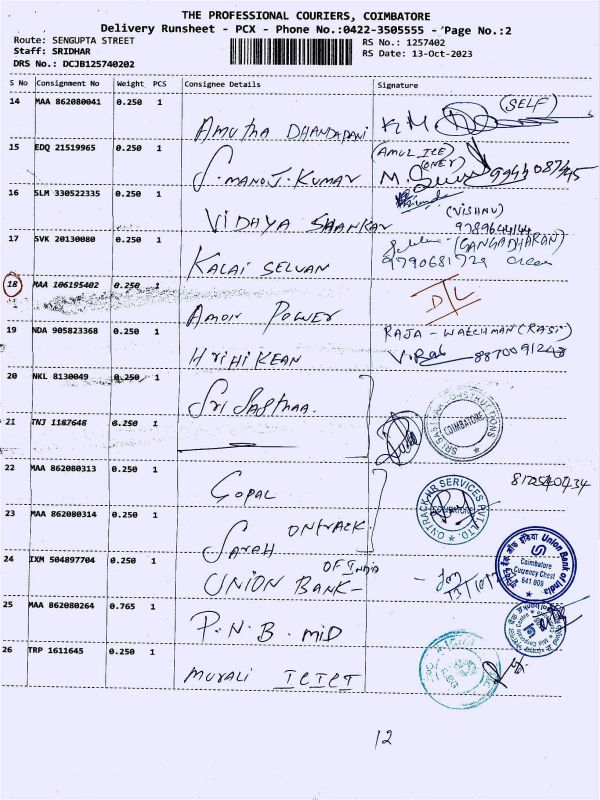 THE PROFESSIONAL COURIERS, COIMBATORE
Delivery Runsheet - PCX - Phone No.:0422-3505555 - Page No.:2
Route: SENGUPTA STREET
RS No.: 1257402
Staff: SRIDHAR
RS Date: 13-Oct-2023
DRS No.: DCJB125740202
S No Consignment No Weight PCS Consignee Details Signature
14 MAA 862080041 0.250 1
(SELF)
AMUTHA DHANDAPANI
15 EDQ 21519965 0.250 1
(AMUL ICE)
S. MANOJ. KUMAR
16 SLM 330522335 0.250 1
(VISHNU)
VIDHYA SHANKAR 9789644144
17 SVK 20130080 0.250 1
(GANGADHARAN)
KALAI SELVAN 9790681729
18 MAA 106195402 0.250 1
D/L
AMON POWER
19 NDA 905823368 0.250 1
RAJA - WATCHMAN (RASI)
HRIHIKEAN 8870091243
20 NKL 8130049 0.250 1
Sri Sasthaa.
SRI SASTHAA CONSTRUCTIONS
COIMBATORE
21 TNJ 1187648 0.250 1
22 MAA 862080313 0.250 1
GOPAL
ONTRACK HR SERVICES PVT. LTD
COIMBATORE
23 MAA 862080314 0.250 1
ONTRACK.
SARAH
24 IXM 504897704 0.250 1
OF INDIA
UNION BANK -
Union Bank of India
Coimbatore
Currency Chest
641 009
25 MAA 862080264 0.765 1
P.N.B. MID
26 TRP 1611645 0.250 1
MURALI ICICI
12